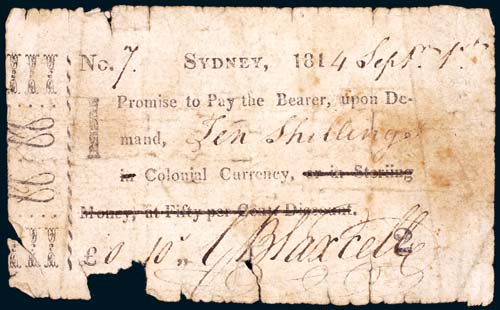 No. 7. SYDNEY, 1814 Septr. 1st
I Promise to Pay the Bearer, upon De-
mand, Ten Shillings
in Colonial Currency, or in Sterling
Money, at Fifty per Cent Discount.
£0 10 „ G Blaxcell